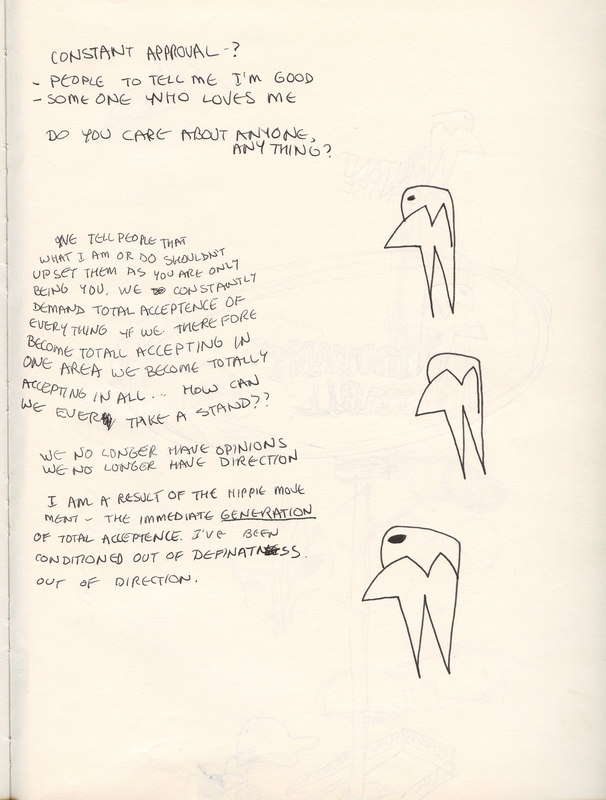 CONSTANT APPROVAL -?
- PEOPLE TO TELL ME I'M GOOD
- SOMEONE WHO LOVES ME
DO YOU CARE ABOUT ANYONE,
ANYTHING?
WE TELL PEOPLE THAT
WHAT I AM OR DO SHOULDN'T
UPSET THEM AS YOU ARE ONLY
BEING YOU. WE CONSTANTLY
DEMAND TOTAL ACCEPTENCE OF
EVERYTHING IF WE THEREFORE
BECOME TOTALL ACCEPTING IN
ONE AREA WE BECOME TOTALLY
ACCEPTING IN ALL... HOW CAN
WE EVER TAKE A STAND??
WE NO LONGER HAVE OPINIONS
WE NO LONGER HAVE DIRECTION
I AM A RESULT OF THE HIPPIE MOVE
MENT - THE IMMEDIATE GENERATION
OF TOTAL ACCEPTENCE. I'VE BEEN
CONDITIONED OUT OF DEFINATNESS.
OUT OF DIRECTION.